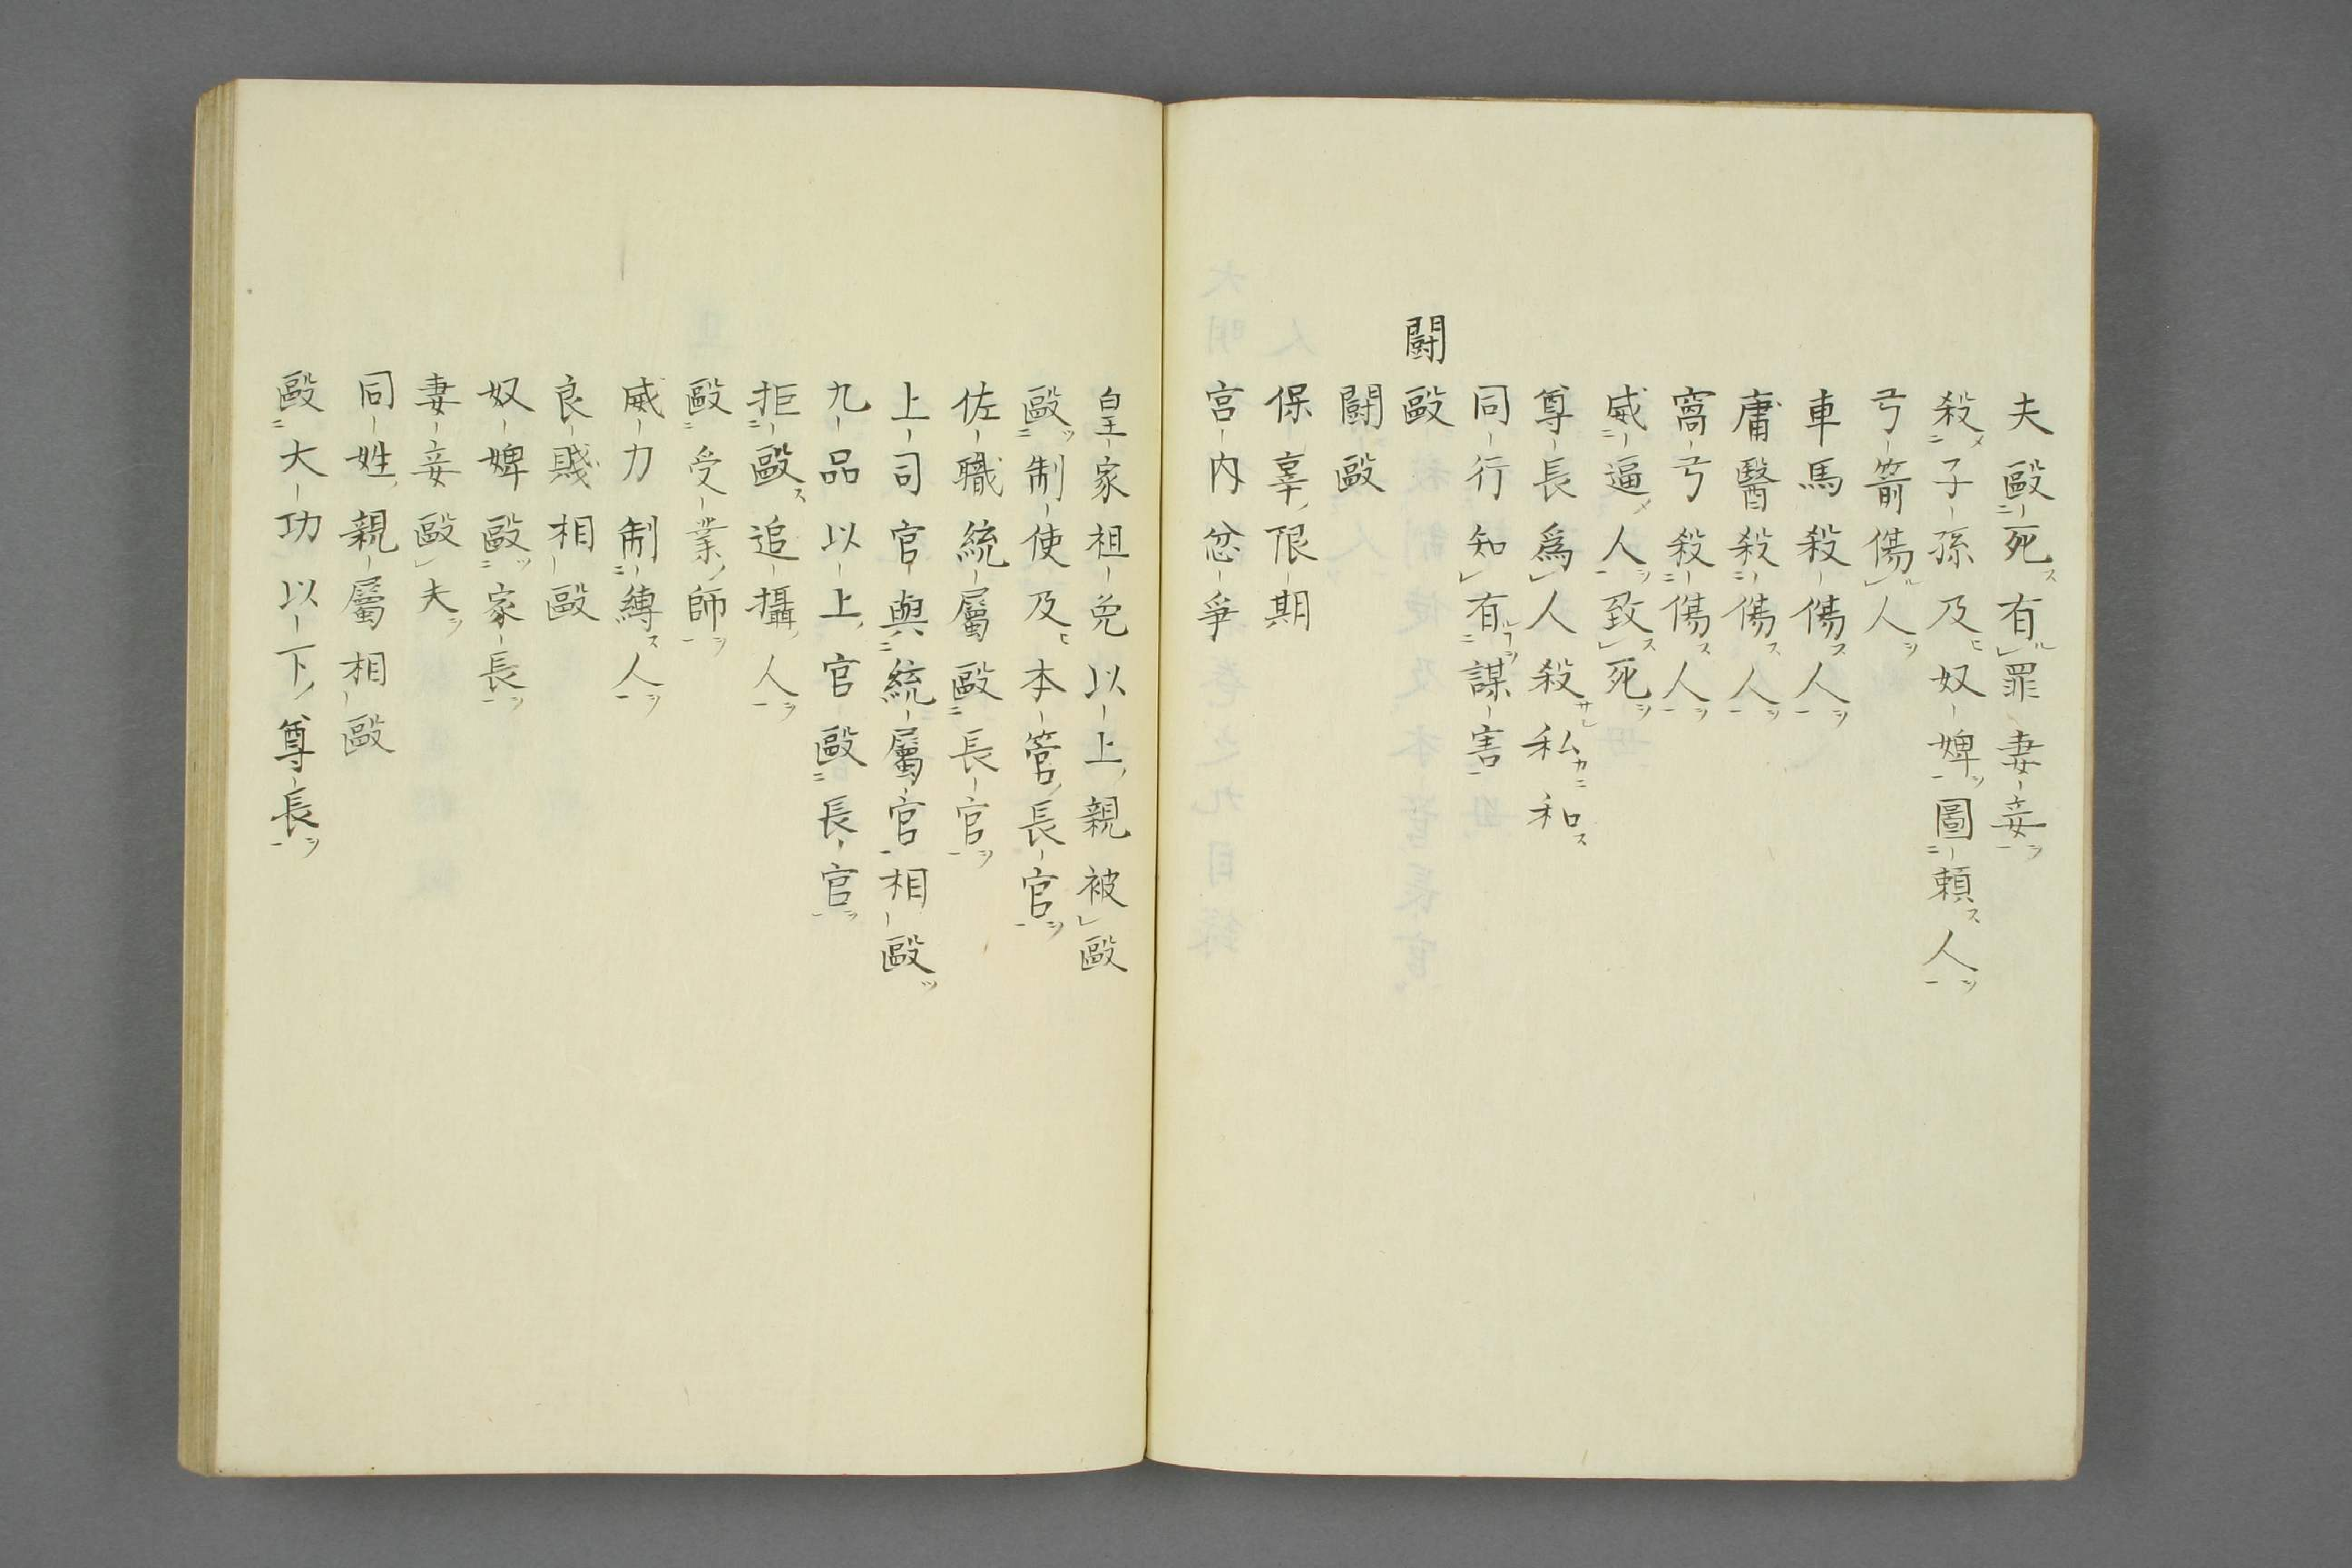 夫毆死有罪妻妾
殺子孫及奴婢圖頼人
弓箭傷人
車馬殺傷人
庸醫殺傷人
窩弓殺傷人
威逼人致死
尊長爲人殺私和
同行知有謀害
鬪毆
鬪毆
保辜限期
宮内忿爭
皇家袒免以上親被毆
毆制使及本管長官
佐職統屬毆長官
上司官與統屬官相毆
九品以上官毆長官
拒毆追攝人
毆受業師
威力制縛人
良賤相毆
奴婢毆家長
妻妾毆夫
同姓親屬相毆
毆大功以下尊長